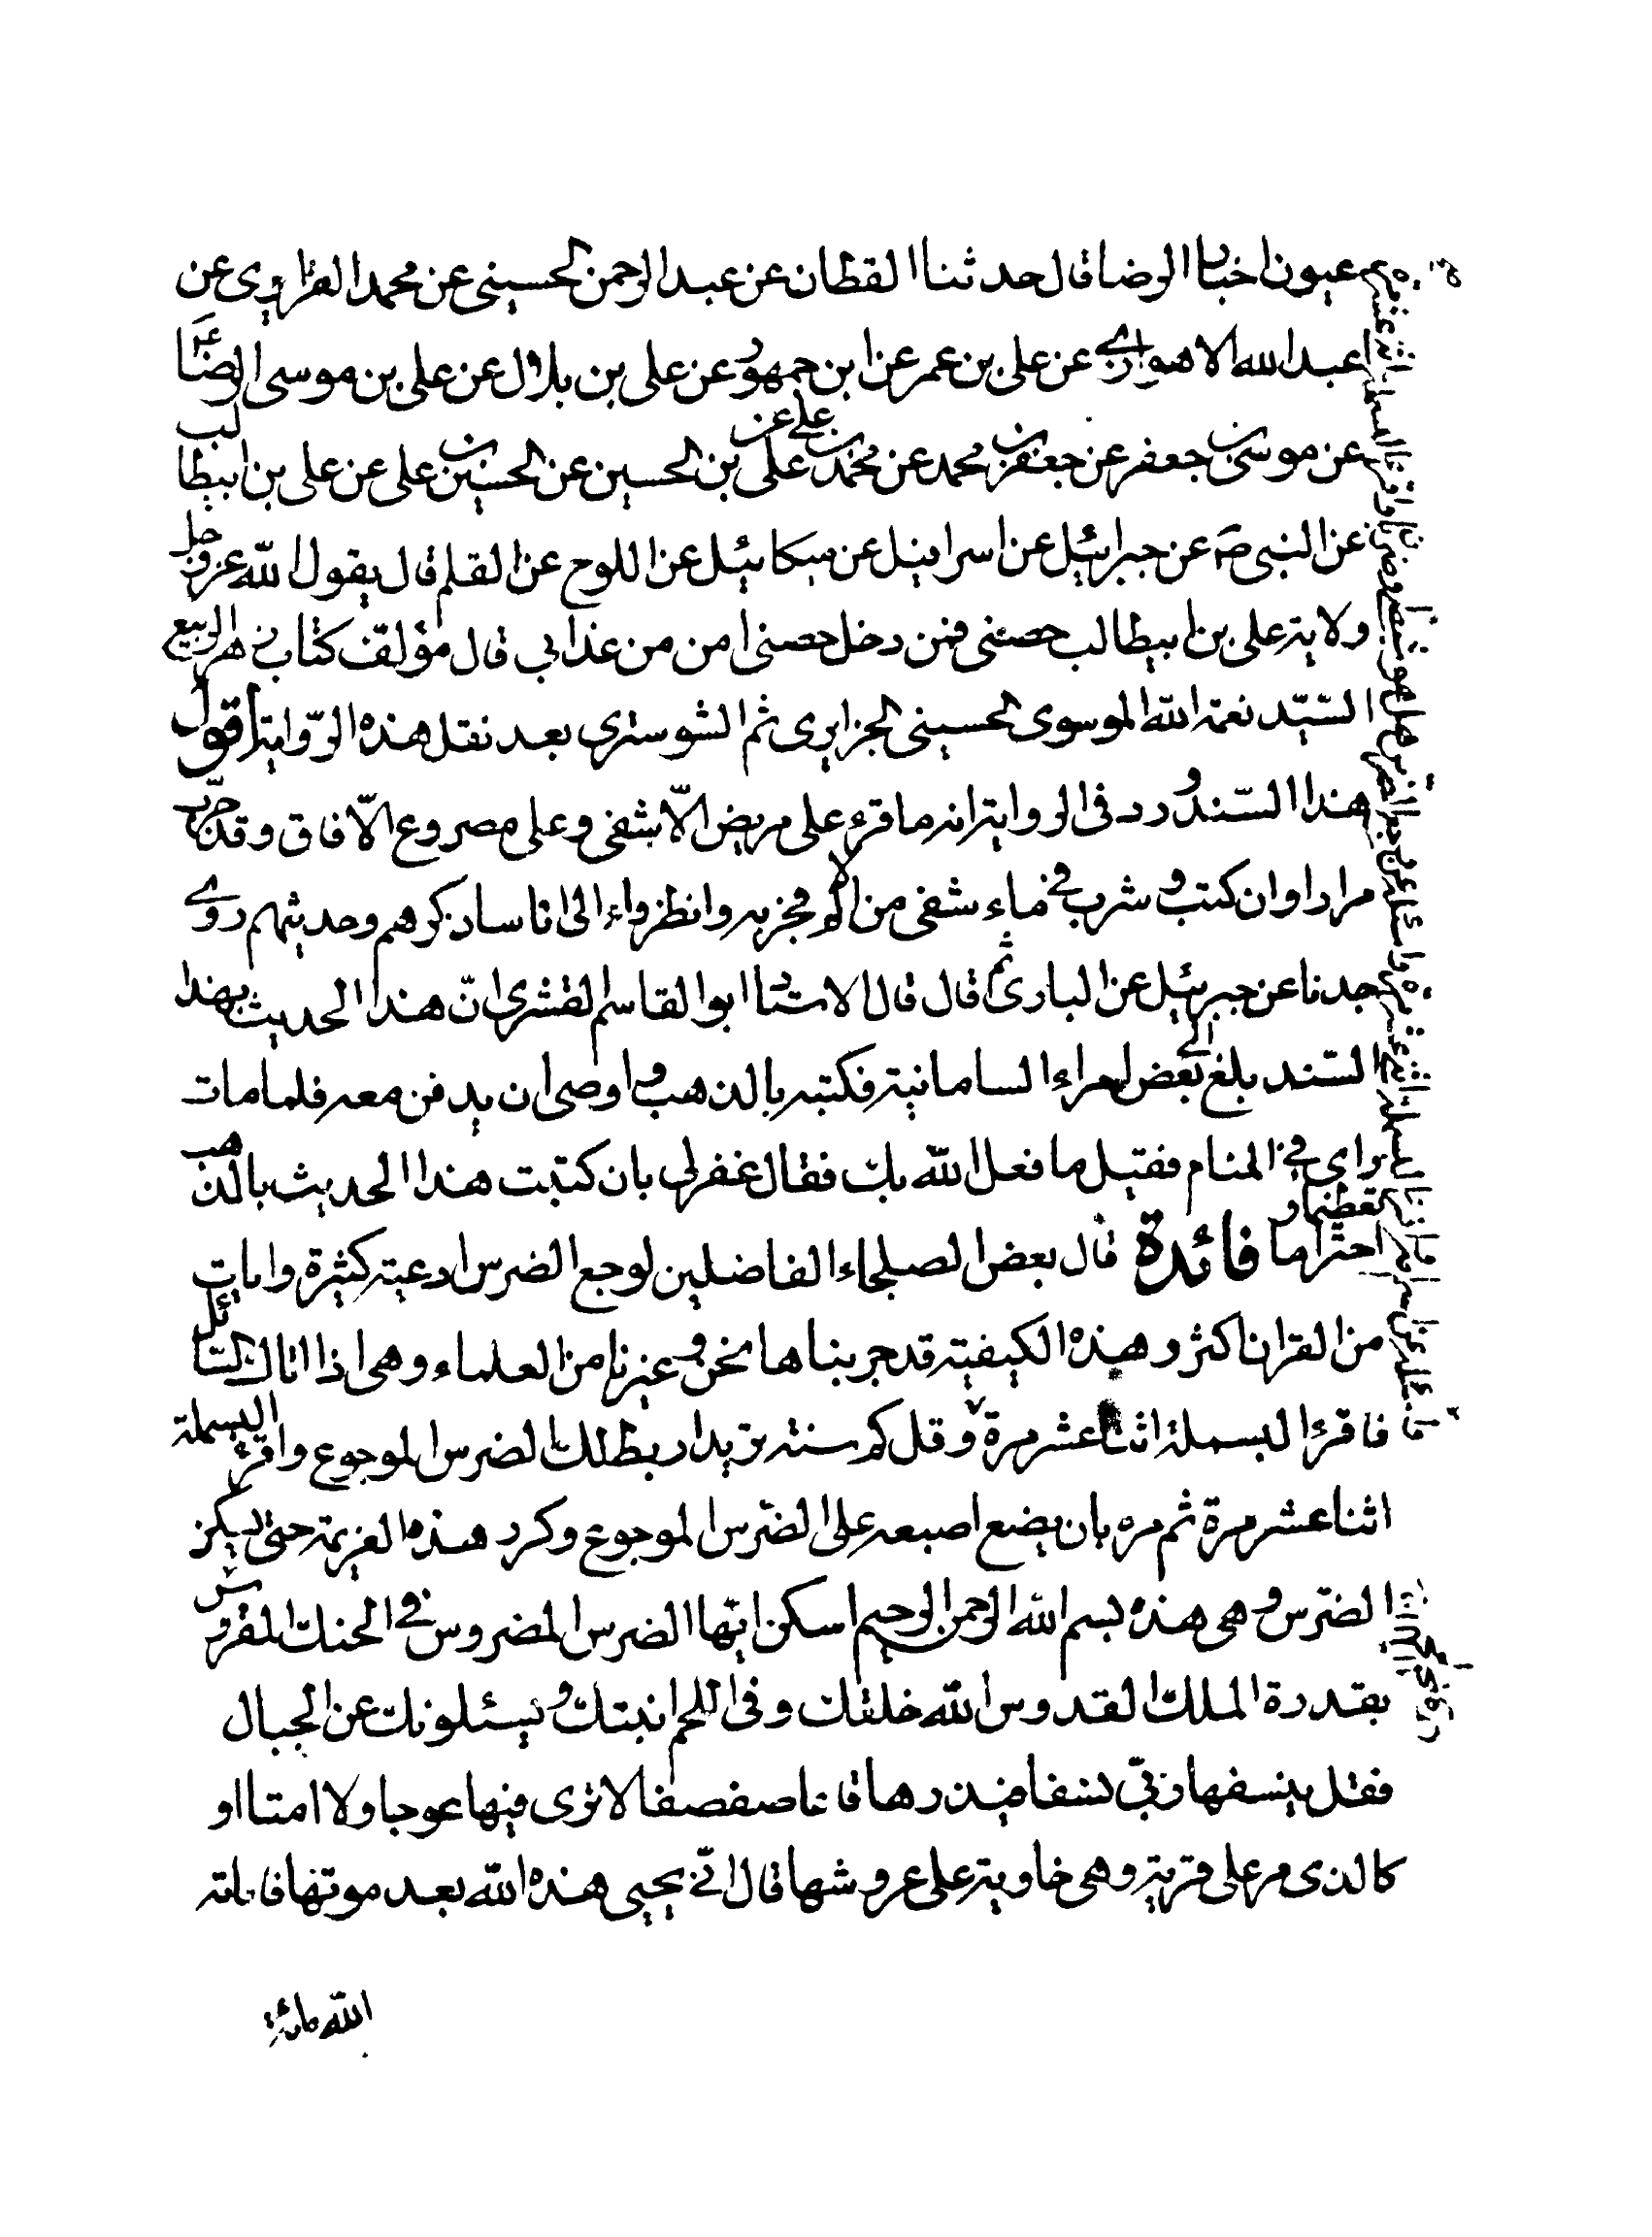 عيون اخبار الرضا قال حدثنا القطان عن عبد الرحمن الحسيني عن محمد الفزاري عن
عبد الله الاهوازي عن على بن عمر عن ابن جمهور عن على بن بلال عن على بن موسى الرضا ع
عن موسى بن جعفر عن جعفر بن محمد عن محمد بن على عن على بن الحسين عن الحسين بن على عن على بن ابيطالب
عن النبى ص عن جبرائيل عن اسرافيل عن ميكائيل عن اللوح عن القلم قال يقول الله عز وجل
ولاية على بن ابيطالب حصنى فمن دخل حصنى امن من عذابي قال مؤلف كتاب زهر الربيع
السيّد نعمة الله الموسوى الحسينى الجزايرى ثم الشوسترى بعد نقل هذه الرّواية اقول
هذا السّند ورد فى الرواية انه ما قرء على مريض الّا شفى وعلى مصروع الّا فاق وقد جرّب
مرارا وان كتب وشرب فى ماء شفى من الالام مجز به وانظروا الى اناسا ذكرهم وحديثهم روى
جدنا عن جبرئيل عن البارى ثم قال قال الاستاد ابو القاسم القشرى انّ هذا الحديث بهذا
السّند بلغ الى بعض امراء السامانية فكتبه بالذهب واوصى ان يدفن معه فلما مات
راى فى المنام فقيل ما فعل الله بك فقال غفر لى بان كتبت هذا الحديث بالذهب
تعظيما و احتراما فائدة قال بعض الصلحاء الفاضلين لوجع الضرس ادعية كثيرة وايات
من القران اكثر وهذه الكيفية قد جربناها نحن وغيرنا من العلماء وهى اذا اتاك السّائل
فاقرء البسملة اثنا عشر مرة وقل كم سنة تريد اربط لك الضرس الموجوع واقرء البسملة
اثنا عشر مرة ثم مره بان يضع اصبعه على الضّرس الموجوع وكرر هذه العزيمة حتى يسكن
الضّرس وهى هذه بسم الله الرحمن الرحيم اسكن ايّها الضرس المضروس فى الحنك المفروس
بقدرة الملك القدوس الله خلقك وفى اللحم انبتك ويسئلونك عن الجبال
فقل ينسفها ربّي نسفا فيذرها قاعا صفصفا لا ترى فيها عوجا ولا امتا او
كالذى مر على قرية وهى خاوية على عروشها قال انّى يحيى هذه الله بعد موتها فاماته
الله مائة